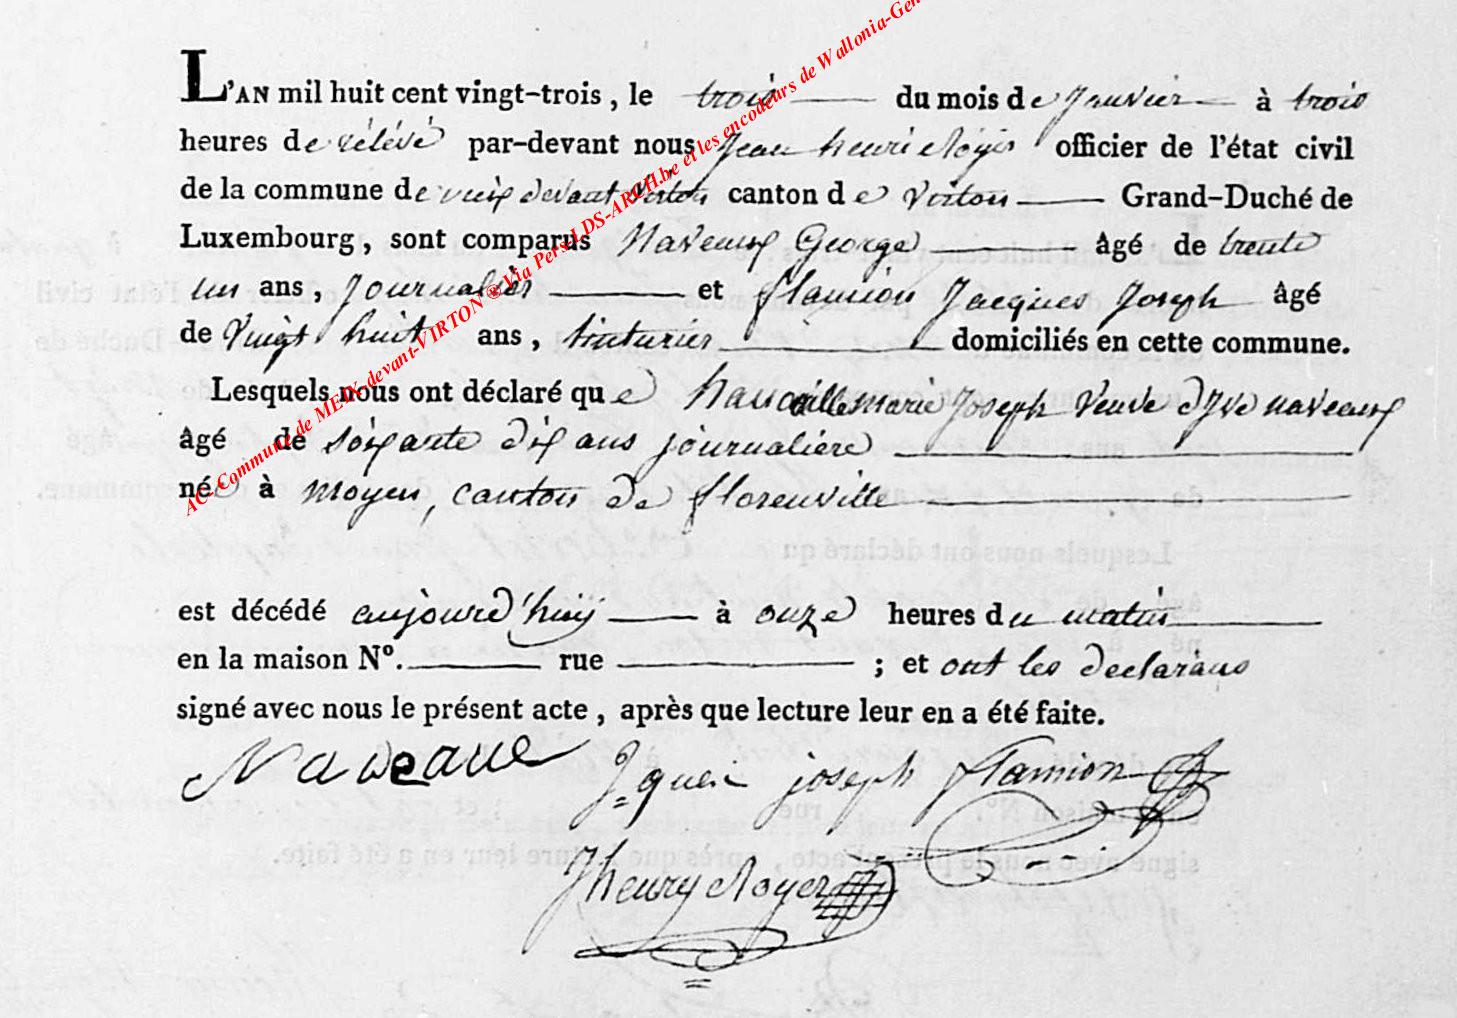 L'AN mil huit cent vingt-trois, le trois du mois de Janvier à trois
heures de rélévé par-devant nous Jean henri Royer officier de l'état civil
de la commune de meix devant Virton canton de Virton Grand-Duché de
Luxembourg, sont comparus Naveaux George âgé de trente
un ans, Journalier et flamion Jacques Joseph âgé
de Vingt huit ans, tinturier domiciliés en cette commune.
Lesquels nous ont déclaré que marie Joseph Veuve d'yve naveaux
âgé de soixante dix ans journaliere
née à moyen, canton de florenville
est décédé aujourd'huy à onze heures du matin
en la maison N°. rue ; et ont les declarans
signé avec nous le présent acte, après que lecture leur en a été faite.
Naveaux joseph flamion
Jhenry Royer
AC- Commune de MEIX-devant-VIRTON ® Via Pers-LDS-ARCH.be et les encodeurs de Wallonia-Gen